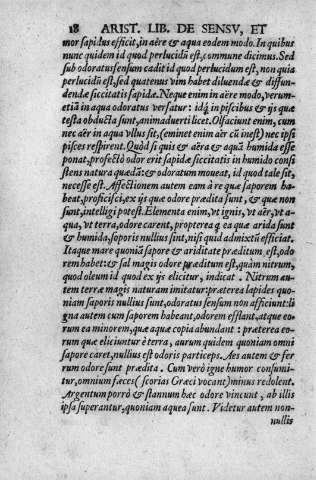 18 ARIST. LIB. DE SENSV, ET
mor sapidus efficit, in aëre & aqua eodem modo. In quibus
nunc quidem id quod perlucidũ est, commune dicimus. Sed
sub odoratus sensum cadit id quod perlucidum est, non quia
perlucidũ est, sed quatenus vim habet diluendæ & diffun-
dendæ siccitatis sapidæ. Neque enim in aëre modo, verum-
etiã in aqua odoratus versatur: idq́ in piscibus & ijs quæ
testa obducta sunt, animaduerti licet. Olfaciunt enim, cum
nec aër in aqua vllus sit, (eminet enim aër cũ inest) nec ipsi
pisces respirent. Quòd si quis & aëra & aquã humida esse
ponat, profectò odor erit sapidæ siccitatis in humido consi
stens natura quædã: & odoratum moueat, id quod tale sit,
necesse est. Affectionem autem eam à re quæ saporem ha-
beat, proficisci, ex ijs quæ odore prædita sunt, & quæ non
sunt, intelligi potest. Elementa enim, vt ignis, vt aër, vt a-
qua, vt terra, odore carent, propterea q̃ ea quæ arida sunt
& humida, saporis nullius sint, nisi quid admixtũ efficiat.
Itaque mare quoniã sapore & ariditate præditum est, odo-
rem habet: & sal magis odore præditum est, quàm nitrum,
quod oleum id quod ex ijs elicitur, indicat. Nitrum au-
tem terræ magis naturam imitatur: præterea lapides quo-
niam saporis nullius sunt, odoratus sensum non afficiunt: li
gna autem cum saporem habeant, odorem efflant, atque eo-
rum ea minorem, quæ aquæ copia abundant: præterea eo-
rum quæ eliciuntur è terra, aurum quidem quoniam omni
sapore caret, nullius est odoris particeps. Aes autem & fer
rum odore sunt prædita. Cum verò igne humor consumi-
tur, omnium fæces (scorias Græci vocant) minus redolent.
Argentum porrò & stannum hæc odore vincunt, ab illis
ipsa superantur, quoniam aquea sunt. Videtur autem non-
nullis